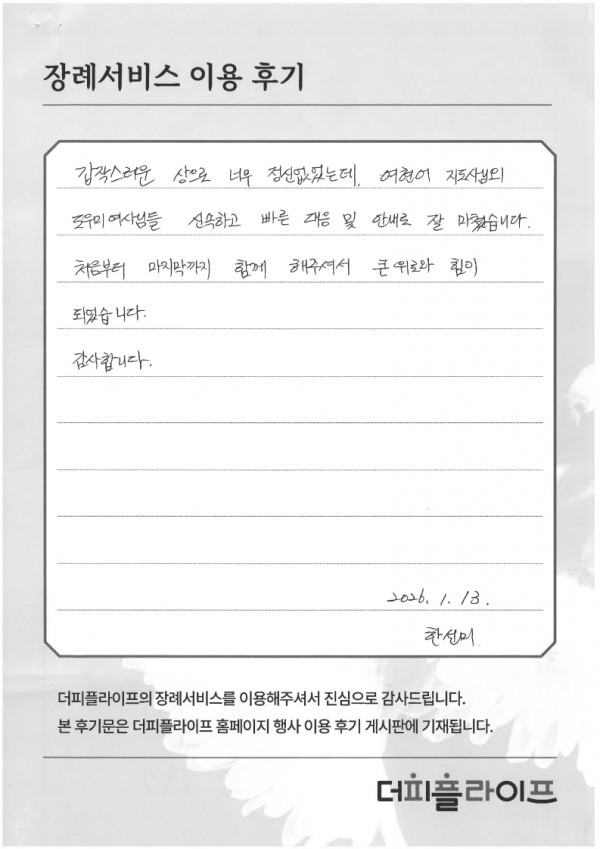 장례서비스 이용 후기
갑작스러운 상으로 너무 정신없었는데, 여현어 지도사님의
도우미여사님들 신속하고 빠른 대응 및 안내로 잘 마쳤습니다.
처음부터 마지막까지 함께 해주셔서 큰 위로와 힘이
되었습니다.
감사합니다.
2026. 1. 13.
한선미
더피플라이프의 장례서비스를 이용해주셔서 진심으로 감사드립니다.
본 후기문은 더피플라이프 홈페이지 행사 이용 후기 게시판에 기재됩니다.
더피플라이프